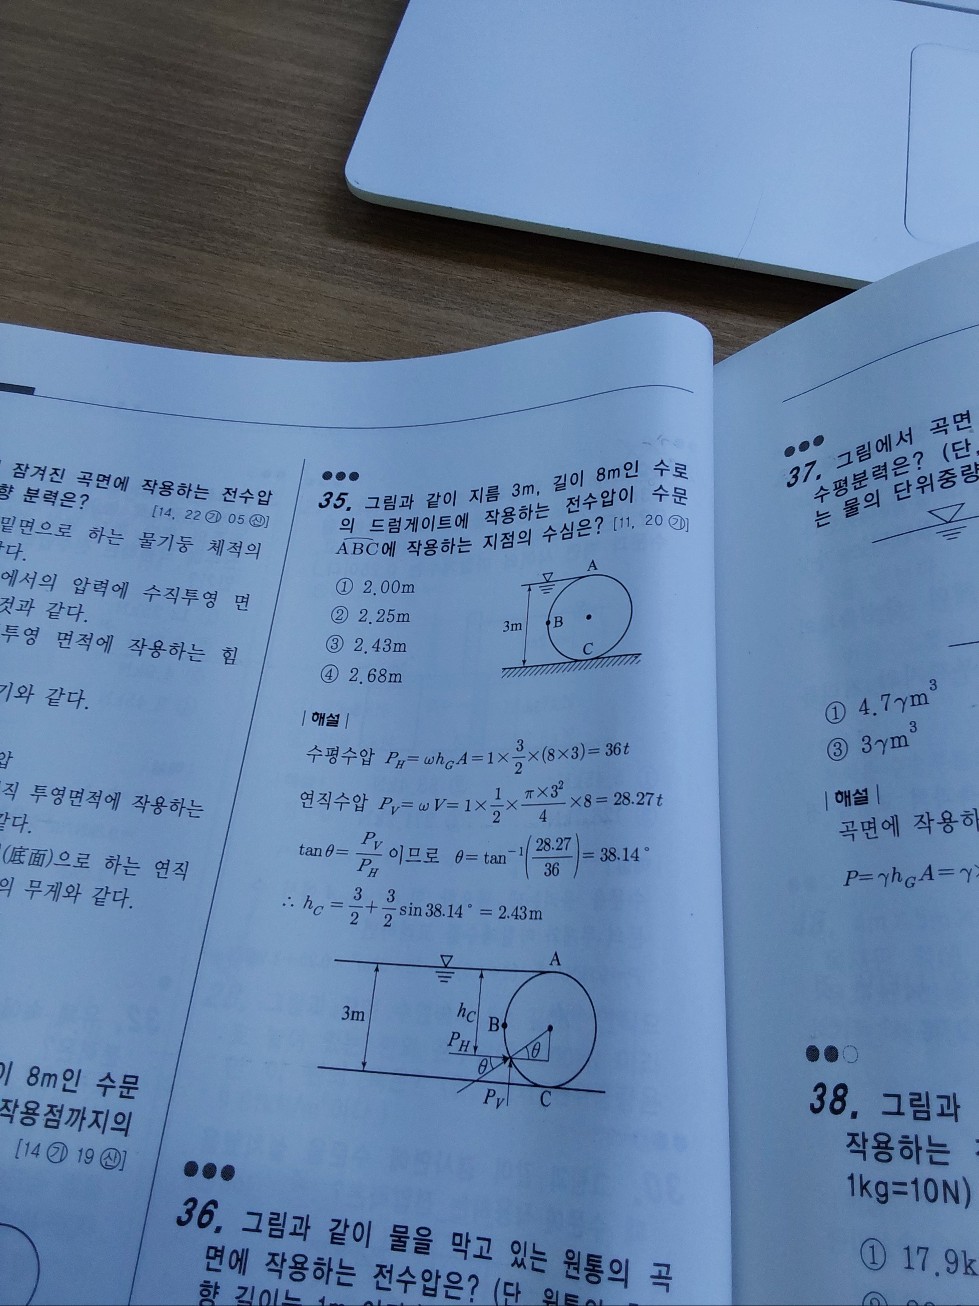 잠겨진 곡면에 작용하는 전수압
향 분력은?
[14, 22 ㉮ 05 ㉯]
밑면으로 하는 물기둥 체적의
같다.
에서의 압력에 수직투영 면
것과 같다.
투영 면적에 작용하는 힘
기와 같다.
압
직 투영면적에 작용하는
같다.
(底面)으로 하는 연직
의 무게와 같다.
이 8m인 수문
작용점까지의
35. 그림과 같이 지름 3m, 길이 8m인 수로
의 드럼게이트에 작용하는 전수압이 수문
ABC에 작용하는 지점의 수심은? [11, 20 ㉮]
① 2.00m
② 2.25m
③ 2.43m
④ 2.68m
A
B
3m
C
| 해설 |
수평수압 P_H = ωh_G A = 1 × 3/2 × (8×3) = 36t
연직수압 P_V = ωV = 1 × 1/2 × π×3²/4 × 8 = 28.27t
tanθ = P_V/P_H 이므로 θ = tan⁻¹(28.27/36) = 38.14°
∴ h_C = 3/2 + 3/2 sin38.14° = 2.43m
A
3m
h_C
B
P_H
θ
θ
P_V
C
36. 그림과 같이 물을 막고 있는 원통의 곡
면에 작용하는 전수압은? (단
37. 그림에서 곡면
수평분력은? (단,
는 물의 단위중량
① 4.7γm³
③ 3γm³
| 해설 |
곡면에 작용하
P = γh_G A = γ
38. 그림과
작용하는
1kg=10N)
① 17.9k